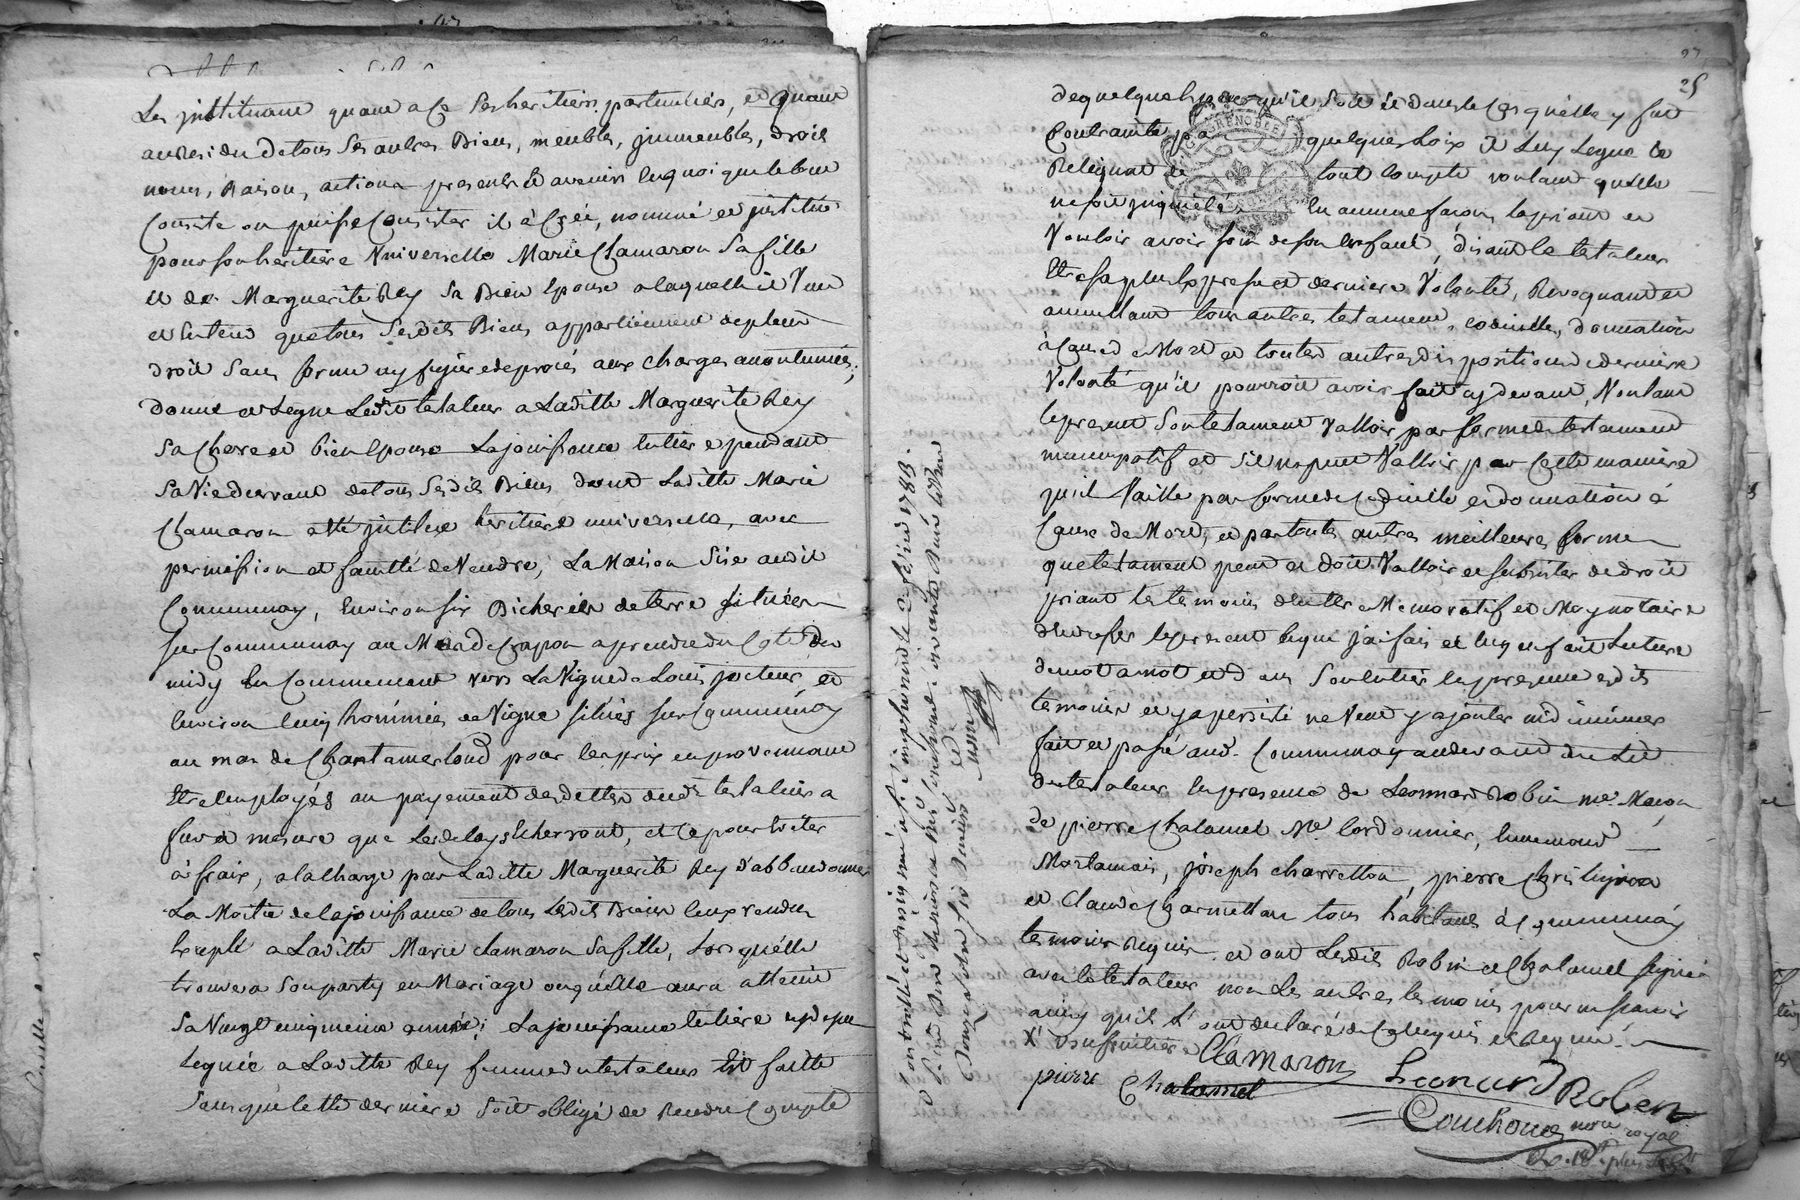 Les jnstituant quant a Ce Ses heritiers particuliers, et quant
au Residu de tous Ses autres Biens, meubles, jmmeubles, droit
noms, Raison, actions presents et avenirs En quoi que le tout
Consiste ou puisse Consister il à Créé, nommé et jnstitué
pour son heritiere Vniverselle Marie Clamaron Sa fille
et de Marguerite Rey Sa Bien Epouse a laquelle il Veut
et Entend que tous Sesdits Biens appartiennent de plein
droit Sans forme ny figure de procés aux charges
donne et Legue Ledit testateur a Laditte Marguerite Rey
Sa Chere et Bien Epouse La jouissance Entiere pendant
Sa Vie durant de tous Sesdits Biens dont Laditte Marie
Clamaron a été jnstituée heritiere universelle, avec
permission et faculté de Vendre, La Maison Sise audit
Communay, Environ six Bicherées de terre situées
sur Communay au Mas de Crapon a prendre du Coté du
midy En Commencant vers La Vigne de Louis et
Environ Cinq hommées de Vigne situés sur Communay
au mas de Chantamerloud pour les prix en provennant
Etre Employés au payement des dettes dudt testateur a
fur et mesure que Les delays Echerront, et Ce pour Eviter
à frais, a la charge par Laditte Marguerite Rey d'abbandonner
La Moitié de la jouissance de tous Lesdits Biens Ceux vendus
Excepté a Laditte Marie Clamaron Sa fille, Lors quélle
trouvera Son party en Mariage ou quélle aura atteint
Sa Vingt cinquieme année; La jouissance Entiere cydessus
Leguée a Laditte Rey femme du testateur Est faitte
Sans que Cette derniere Soit obligé de Rendre Compte
25
de quelque qu'il Soit et dans le Cas quélle y fut
Contrainte par quelques Loix il Luy Legue Le
Reliquat de tout Compte voulant quelle
ne soit jnquietée En aucune facon, la priant de
Vouloir avoir soin de son Enfant, disant le testateur
Etre sa plus Expresse et derniere Volonté, Revoquant et
annullant tous autres testament, codicille, donnation
à Cause de Mort et toutes autres dispositions de derniere
Volonté qu'il pourroit avoir fait cy devant, Voulant
le present Son testament Valloir par forme de testament
nuncupatif et Sil ne peut Valloir par Cette maniere
qu'il Vaille par forme de Codicille et donnation à
Cause de Mort, et par toutes autres meilleures forme
que testament peut et doit Valloir et subsister de droit
priant les temoins d'en Etre Memoratif et Moy notaire
den dresser le present Ce que j'ai fais et luy en fait Lecture
de mot a mot et d'un Son Entier En presence desdits
temoins et y a persisté ne Veut y ajouter ni diminuer
fait et passé audt. Communay au devant du Lit
du testateur En presence de Leonnard Robin me Macon
de pierre Chalamel Me Cordonnier, Ennemond
Martamais, joseph charretton, pierre
et Claude Charmettan tous habitans à Communay
temoins Requis et ont Lesdits Robin et Chalamel signé
avec le testateur non Les autres temoins pour ne scavoir
ainsy quils L'ont declaré de Ce Enquis et Requis.
X usufruitiere Clamaron Leonard Roben
pierre Chalamel
Couchoud nore royal
Controllé et insinué à St. Simphorien le 1788.